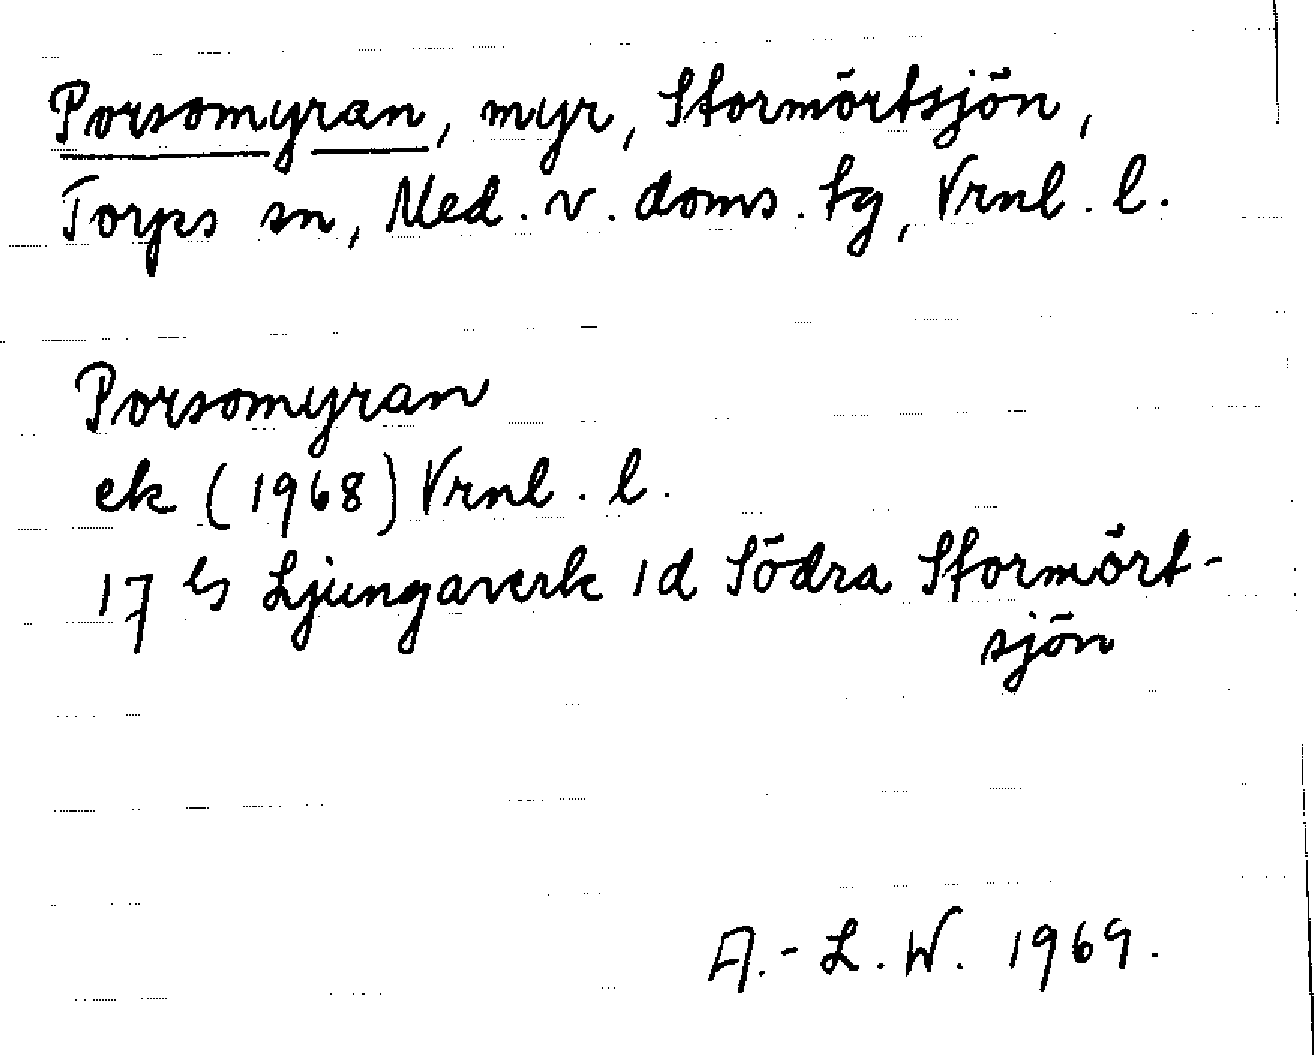 Porsomyran, myr, Stormörtsjön,
Torps sn, Med. v. doms. tg, Vrnl. l.
Porsomyran
ek (1968) Vrnl. l.
17 Ljungaverk 1d Södra Stormört-
sjön
A.-L. W. 1969.